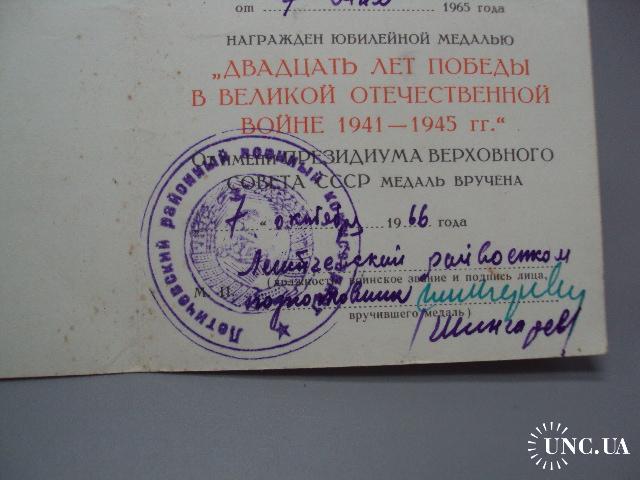 от 7 мая 1965 года
НАГРАЖДЕН ЮБИЛЕЙНОЙ МЕДАЛЬЮ
„ДВАДЦАТЬ ЛЕТ ПОБЕДЫ
В ВЕЛИКОЙ ОТЕЧЕСТВЕННОЙ
ВОЙНЕ 1941—1945 гг.“
От имени ПРЕЗИДИУМА ВЕРХОВНОГО
СОВЕТА СССР МЕДАЛЬ ВРУЧЕНА
„7“ октября 1966 года
райвоенком
(должность, воинское звание и подпись лица,
М. П. подполковник
вручившего медаль)
Шингарев
Летичевский районный военный
UNC.UA